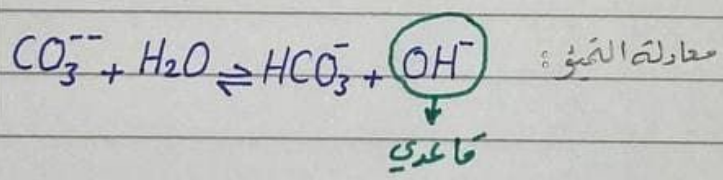 معادلة التميؤ:
CO₃⁻⁻ + H₂O ⇌ HCO₃⁻ + OH⁻
قاعدي